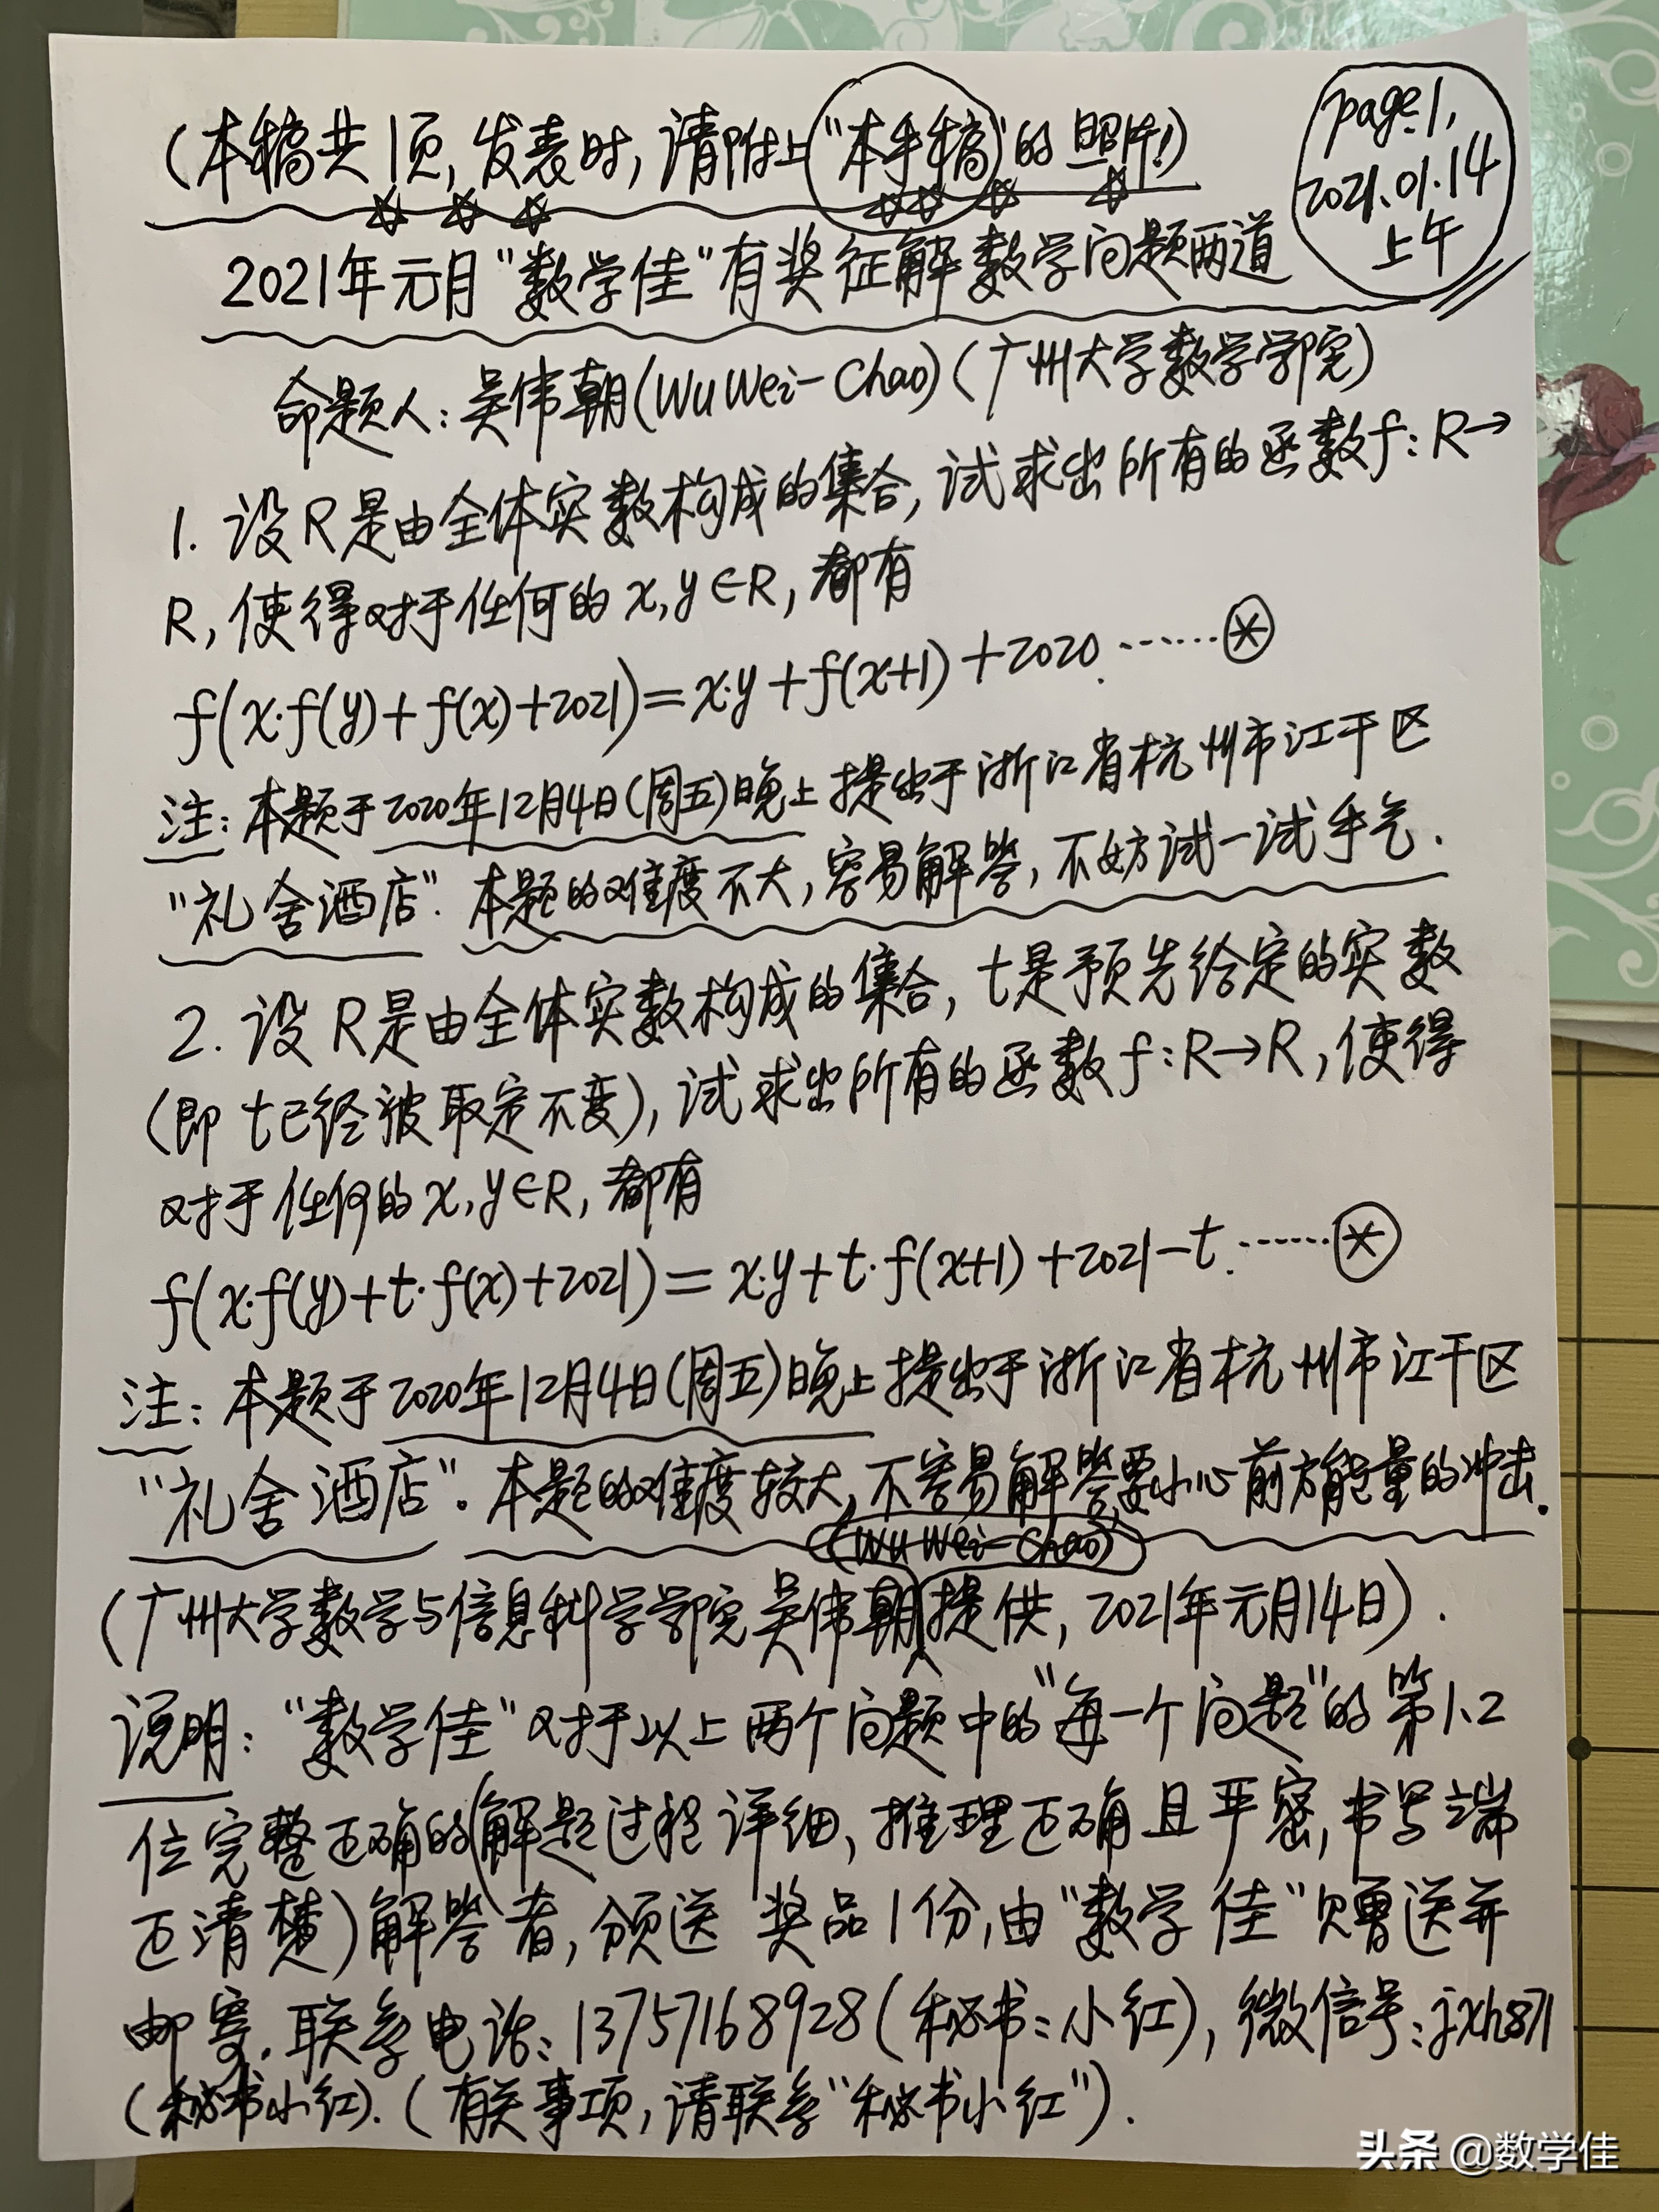 (本稿共1页,发表时,请附上"本手稿"的照片!)
page1,
2021.01.14
上午
2021年元月"数学佳"有奖征解数学问题两道
命题人:吴伟朝(Wu Wei-Chao)(广州大学数学学院)
1. 设R是由全体实数构成的集合,试求出所有的函数f:R→
R,使得对于任何的x,y∈R,都有
f(x·f(y)+f(x)+2021)=x·y+f(x+1)+2020.……⊛
注:本题于2020年12月4日(周五)晚上提出于浙江省杭州市江干区
"礼舍酒店".本题的难度不大,容易解答,不妨试一试手气.
2. 设R是由全体实数构成的集合,t是预先给定的实数
(即t已经被取定不变),试求出所有的函数f:R→R,使得
对于任何的x,y∈R,都有
f(x·f(y)+t·f(x)+2021)=x·y+t·f(x+1)+2021-t.……⊛
注:本题于2020年12月4日(周五)晚上提出于浙江省杭州市江干区
"礼舍酒店".本题的难度较大,不容易解答,要小心前方能量的冲击.
(Wu Wei-Chao)
(广州大学数学与信息科学学院吴伟朝提供,2021年元月14日).
说明:"数学佳"对于以上两个问题中的"每一个问题"的第1、2
位完整正确的(解题过程详细,推理正确且严密,书写端
正清楚)解答者,颁送奖品1份,由"数学佳"赠送并
邮寄.联系电话:13757168928(秘书:小红),微信号:jxh871
(秘书小红).(有关事项,请联系"秘书小红").
头条 @数学佳